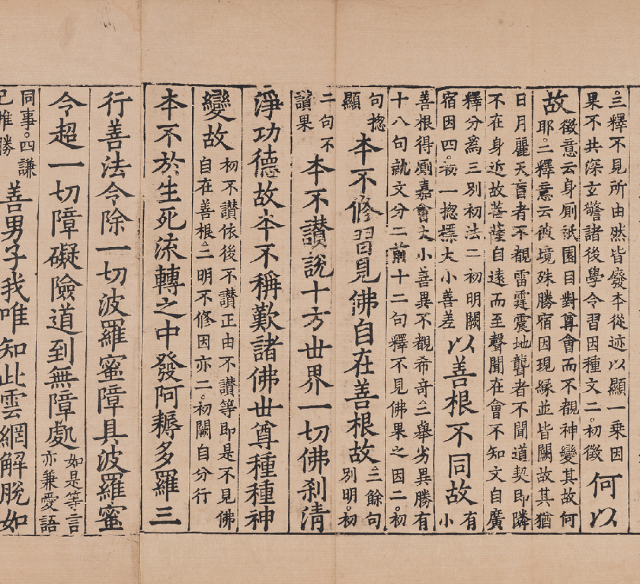 ○三釋不見所由然皆發本從迹以顯一乘因
果不共深玄警諸後學令習因種文二初徵
何以
故
徵意云身廁祇園目對尊會而不覩神變其故何
耶二釋意云彼境殊勝宿因現緣並皆闕故其猶
日月麗天盲者不覩雷霆震地聾者不聞道契即隣
不在身近故菩薩自遠而至聲聞在會不知文自廣
釋分為三別初法二初明闕
宿因四初一揔標大小善差
以善根不同故
有
小
善根得廁嘉會文小善異不覩希奇三舉劣異勝有
十八句就文分二前十二句釋不見佛果之因二初
句揔
顯
本不修習見佛自在善根故
三餘句
別明初
二句不
讃果
本不讚說十方世界一切佛剎清
淨功德故本不稱歎諸佛世尊種種神
變故
初不讃依後不讃正由不讃等即是不見佛
自在善根二明不修因亦二初闕自分行
本不於生死流轉之中發阿耨多羅三
行善法令除一切波羅蜜障具波羅蜜
令超一切障礙險道到無障處
如是等言
亦兼愛語
同事四謙
己惟勝
善男子我唯知此雲網解脫如